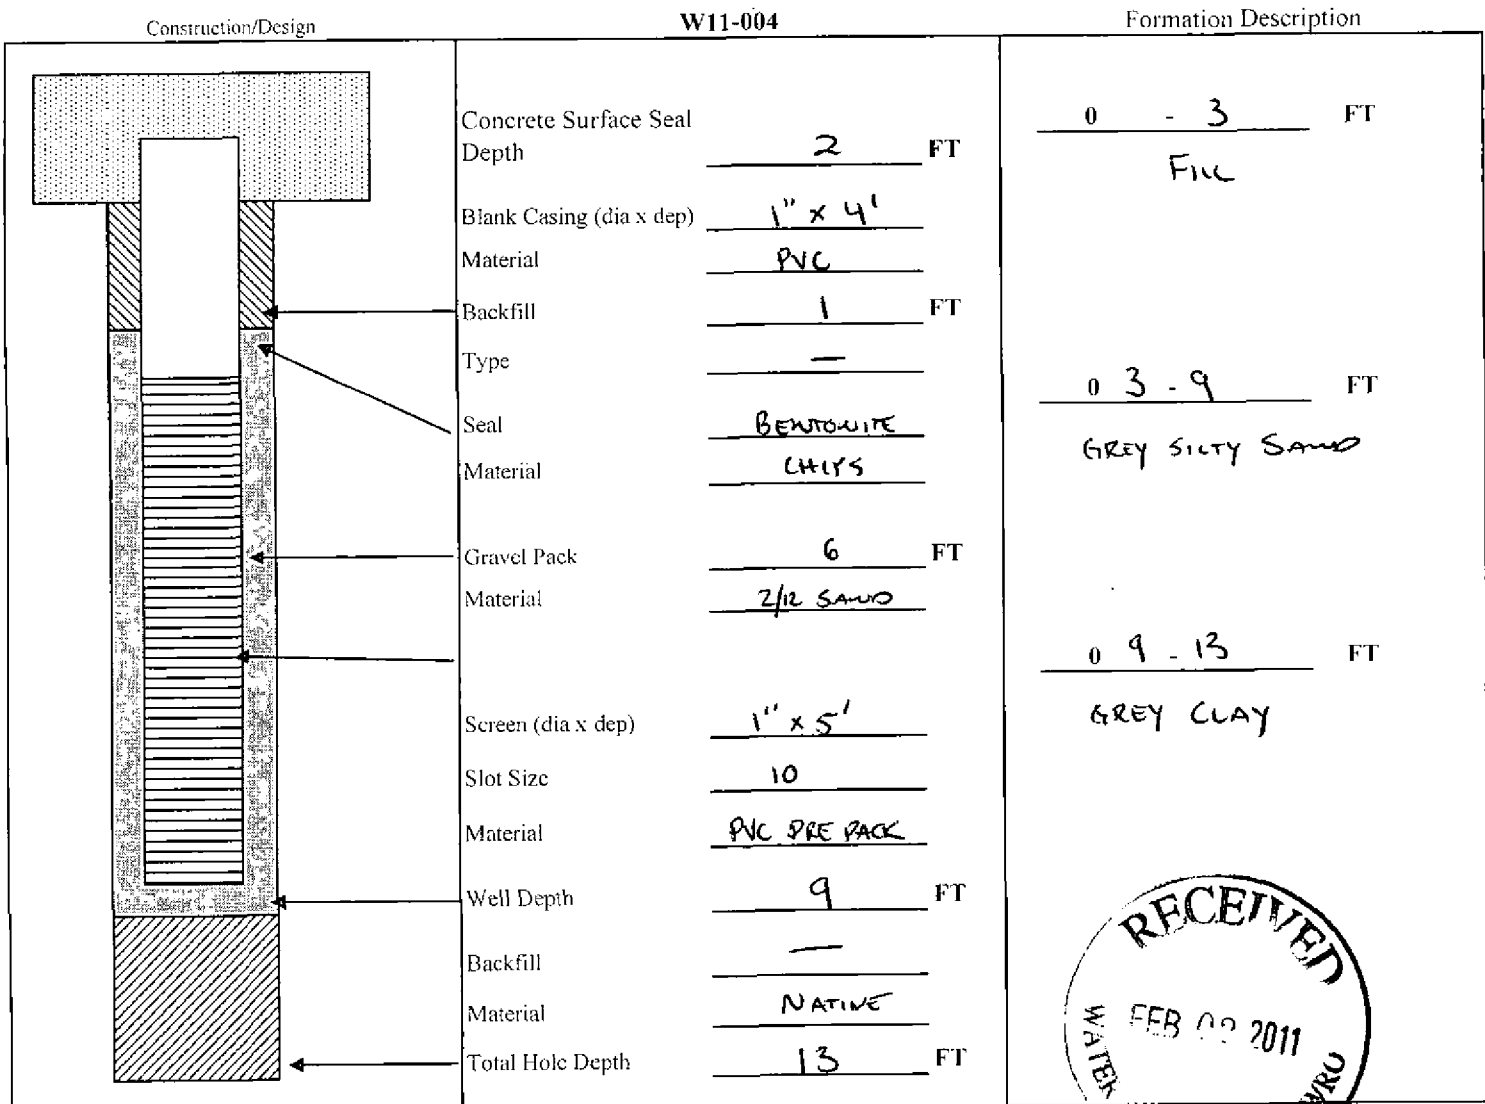 Construction/Design
W11-004
Formation Description
Concrete Surface Seal
Depth 2 FT
Blank Casing (dia x dep) 1" x 4'
Material PVC
Backfill 1 FT
Type —
Seal BENTONITE
Material CHIPS
Gravel Pack 6 FT
Material 2/12 SAND
Screen (dia x dep) 1" x 5'
Slot Size 10
Material PVC PRE PACK
Well Depth 9 FT
Backfill —
Material NATIVE
Total Hole Depth 13 FT
0 - 3 FT
FILL
0 3 - 9 FT
GREY SILTY SAND
0 9 - 13 FT
GREY CLAY
RECEIVED
FEB 2011
WATER